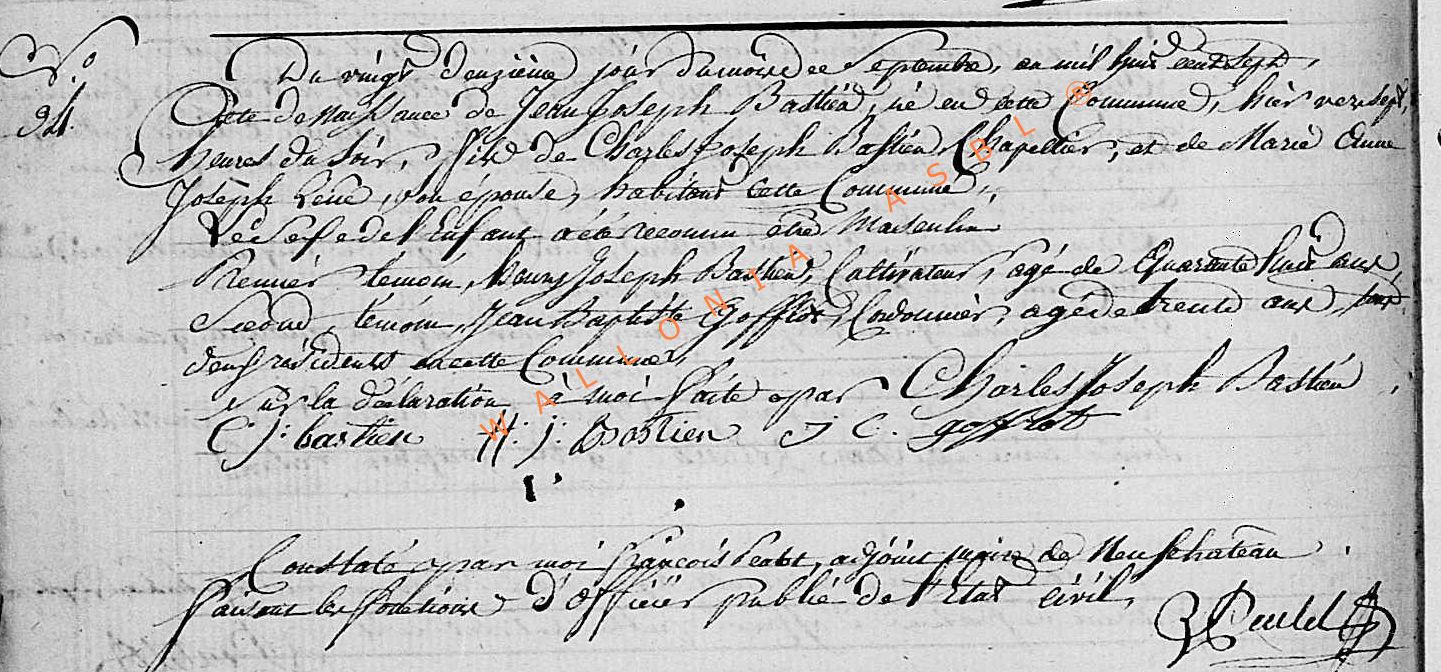 N.o
34.
Du vingt deuzième jour du mois de Septembre, an mil huit cent sept,
Acte de Naissance de Jean Joseph Bastien, né en cette Commune, hier vers sept
heures du Soir, fils de Charles Joseph Bastien Chapellier, et de Marie Anne
Joseph son épouse, habitans cette Commune,
Le Sexe de l'Enfant a été reconnu être Masculin
Premier témoin, Joseph Bastien, Cultivateur, agé de Quarante huit ans,
Second témoin, Jean Baptiste Gofflot, Cordonnier, agé de trente ans, tous
deux résidents en cette Commune,
Sur la déclaration à moi faite par Charles Joseph Bastien,
C: J: bastien H: J: Bastien J C. gofflot
Constaté par moi françois adjoint maire de Neufchateau
faisant les fonctions d'Officier public de l'Etat civil,
WALLONIA ASBL ®